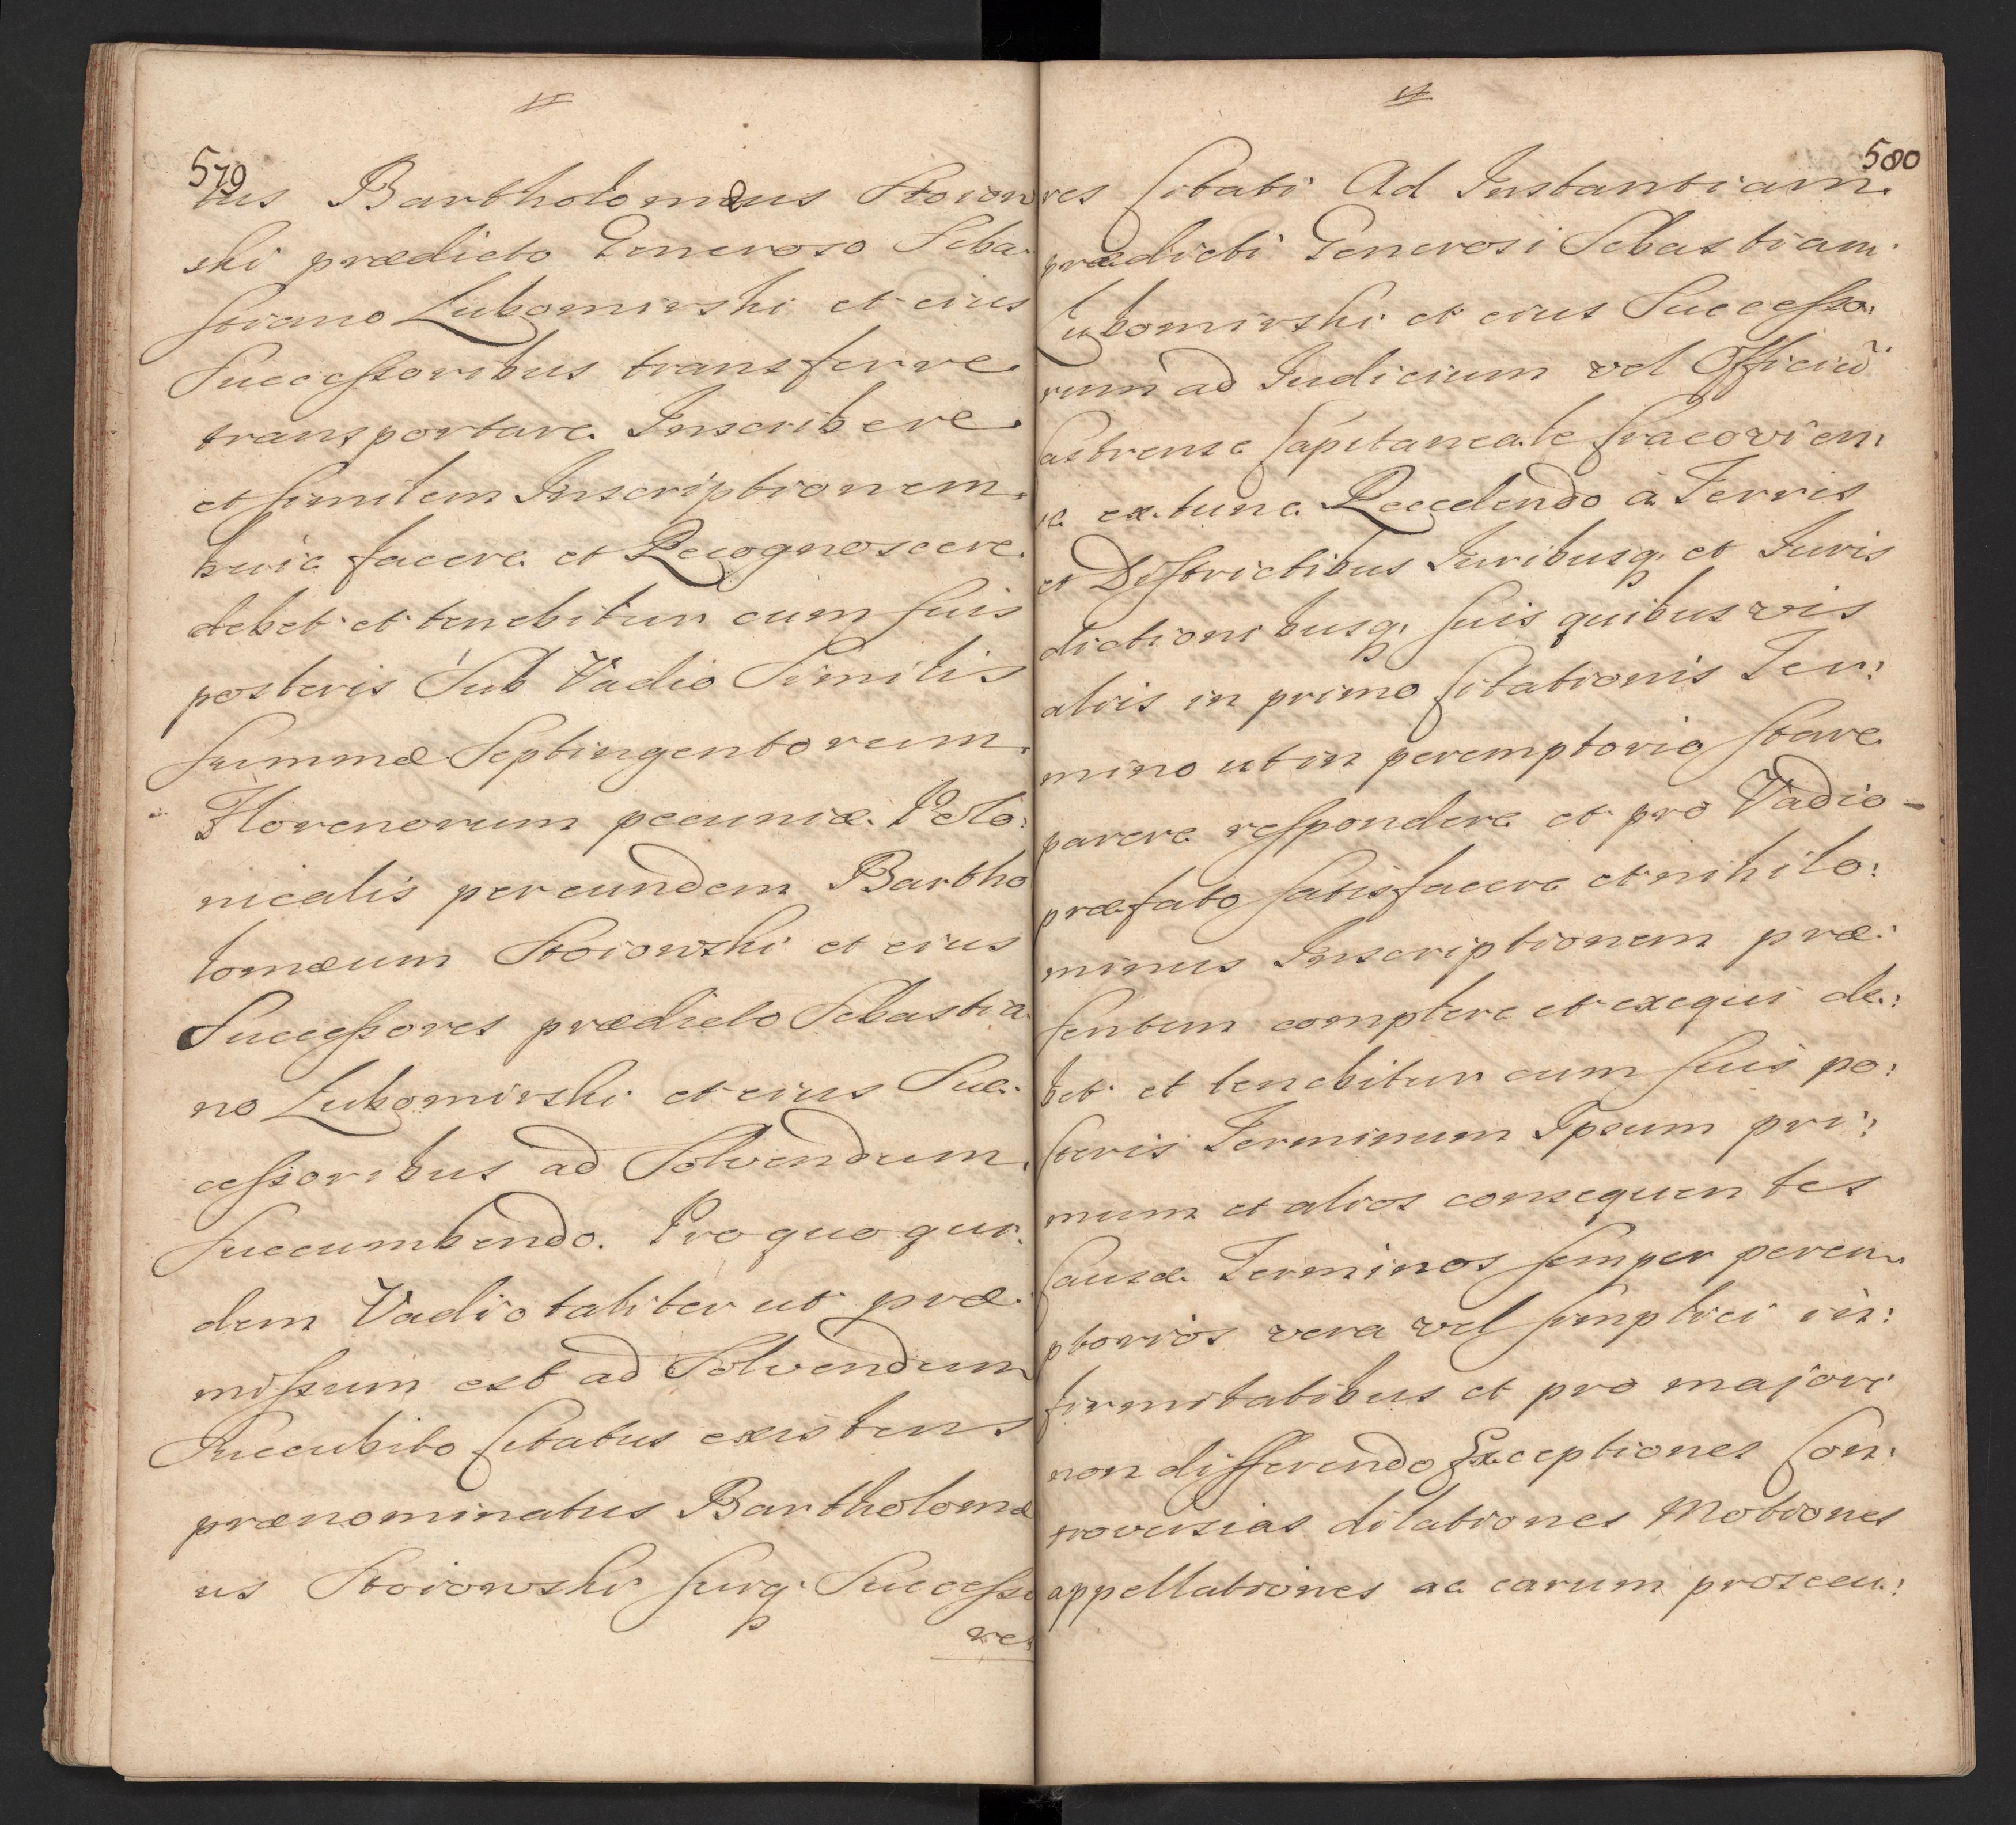 579
tus Bartholomæus Stoiow
ski prædicto Generoso Seba:
stiano Lubomirski et eius
Successoribus transferre
transportare Inscribere
et similem Inscriptionem
huic facere et Recognoscere
debet et tenebitur cum suis
posteris Sub Vadio Similis
summæ Septingentorum
Florenorum pecuniæ Polo:
nicalis per eundem Bartho
lomæum Stoiowski et eius
Successores prædicto Sebastia
no Lubomirski et eius Suc:
cessoribus ad Solvendum
succumbendo. Pro quo qui:
dem Vadio taliter ut præ:
missum est ad Solvendum
Succubito Citatus existens
prænominatus Bartholomæ
us Stoiowski suiq; Successo
res
580
res Citati Ad Instantiam
prædicti Generosi Sebastiani
Lubomirski et eius Successo:
rum ad Iudicium vel Officiũ
Castrense Capitaneale Cracovien:
se extunc Recedendo à Terris
et Districtibus Iuribusq; et Iuris
dictionibusq; suis quibusvis
aliis in primo Citationis Ter:
mino ut in peremptorio stare
parere respondere et pro Vadio
præfato satisfacere et nihilo:
minus Inscriptionem præ:
sentem complere et exequi de:
bet et tenebitur cum suis po:
steris Terminum Ipsum pri:
mum et alios consequentes
Causæ Terminos semper perem
ptorios vera vel simplici in:
firmitatibus et pro majori
non differendo Exceptiones Con:
troversias dilationes Motiones
appellationes ac earum prosecu: